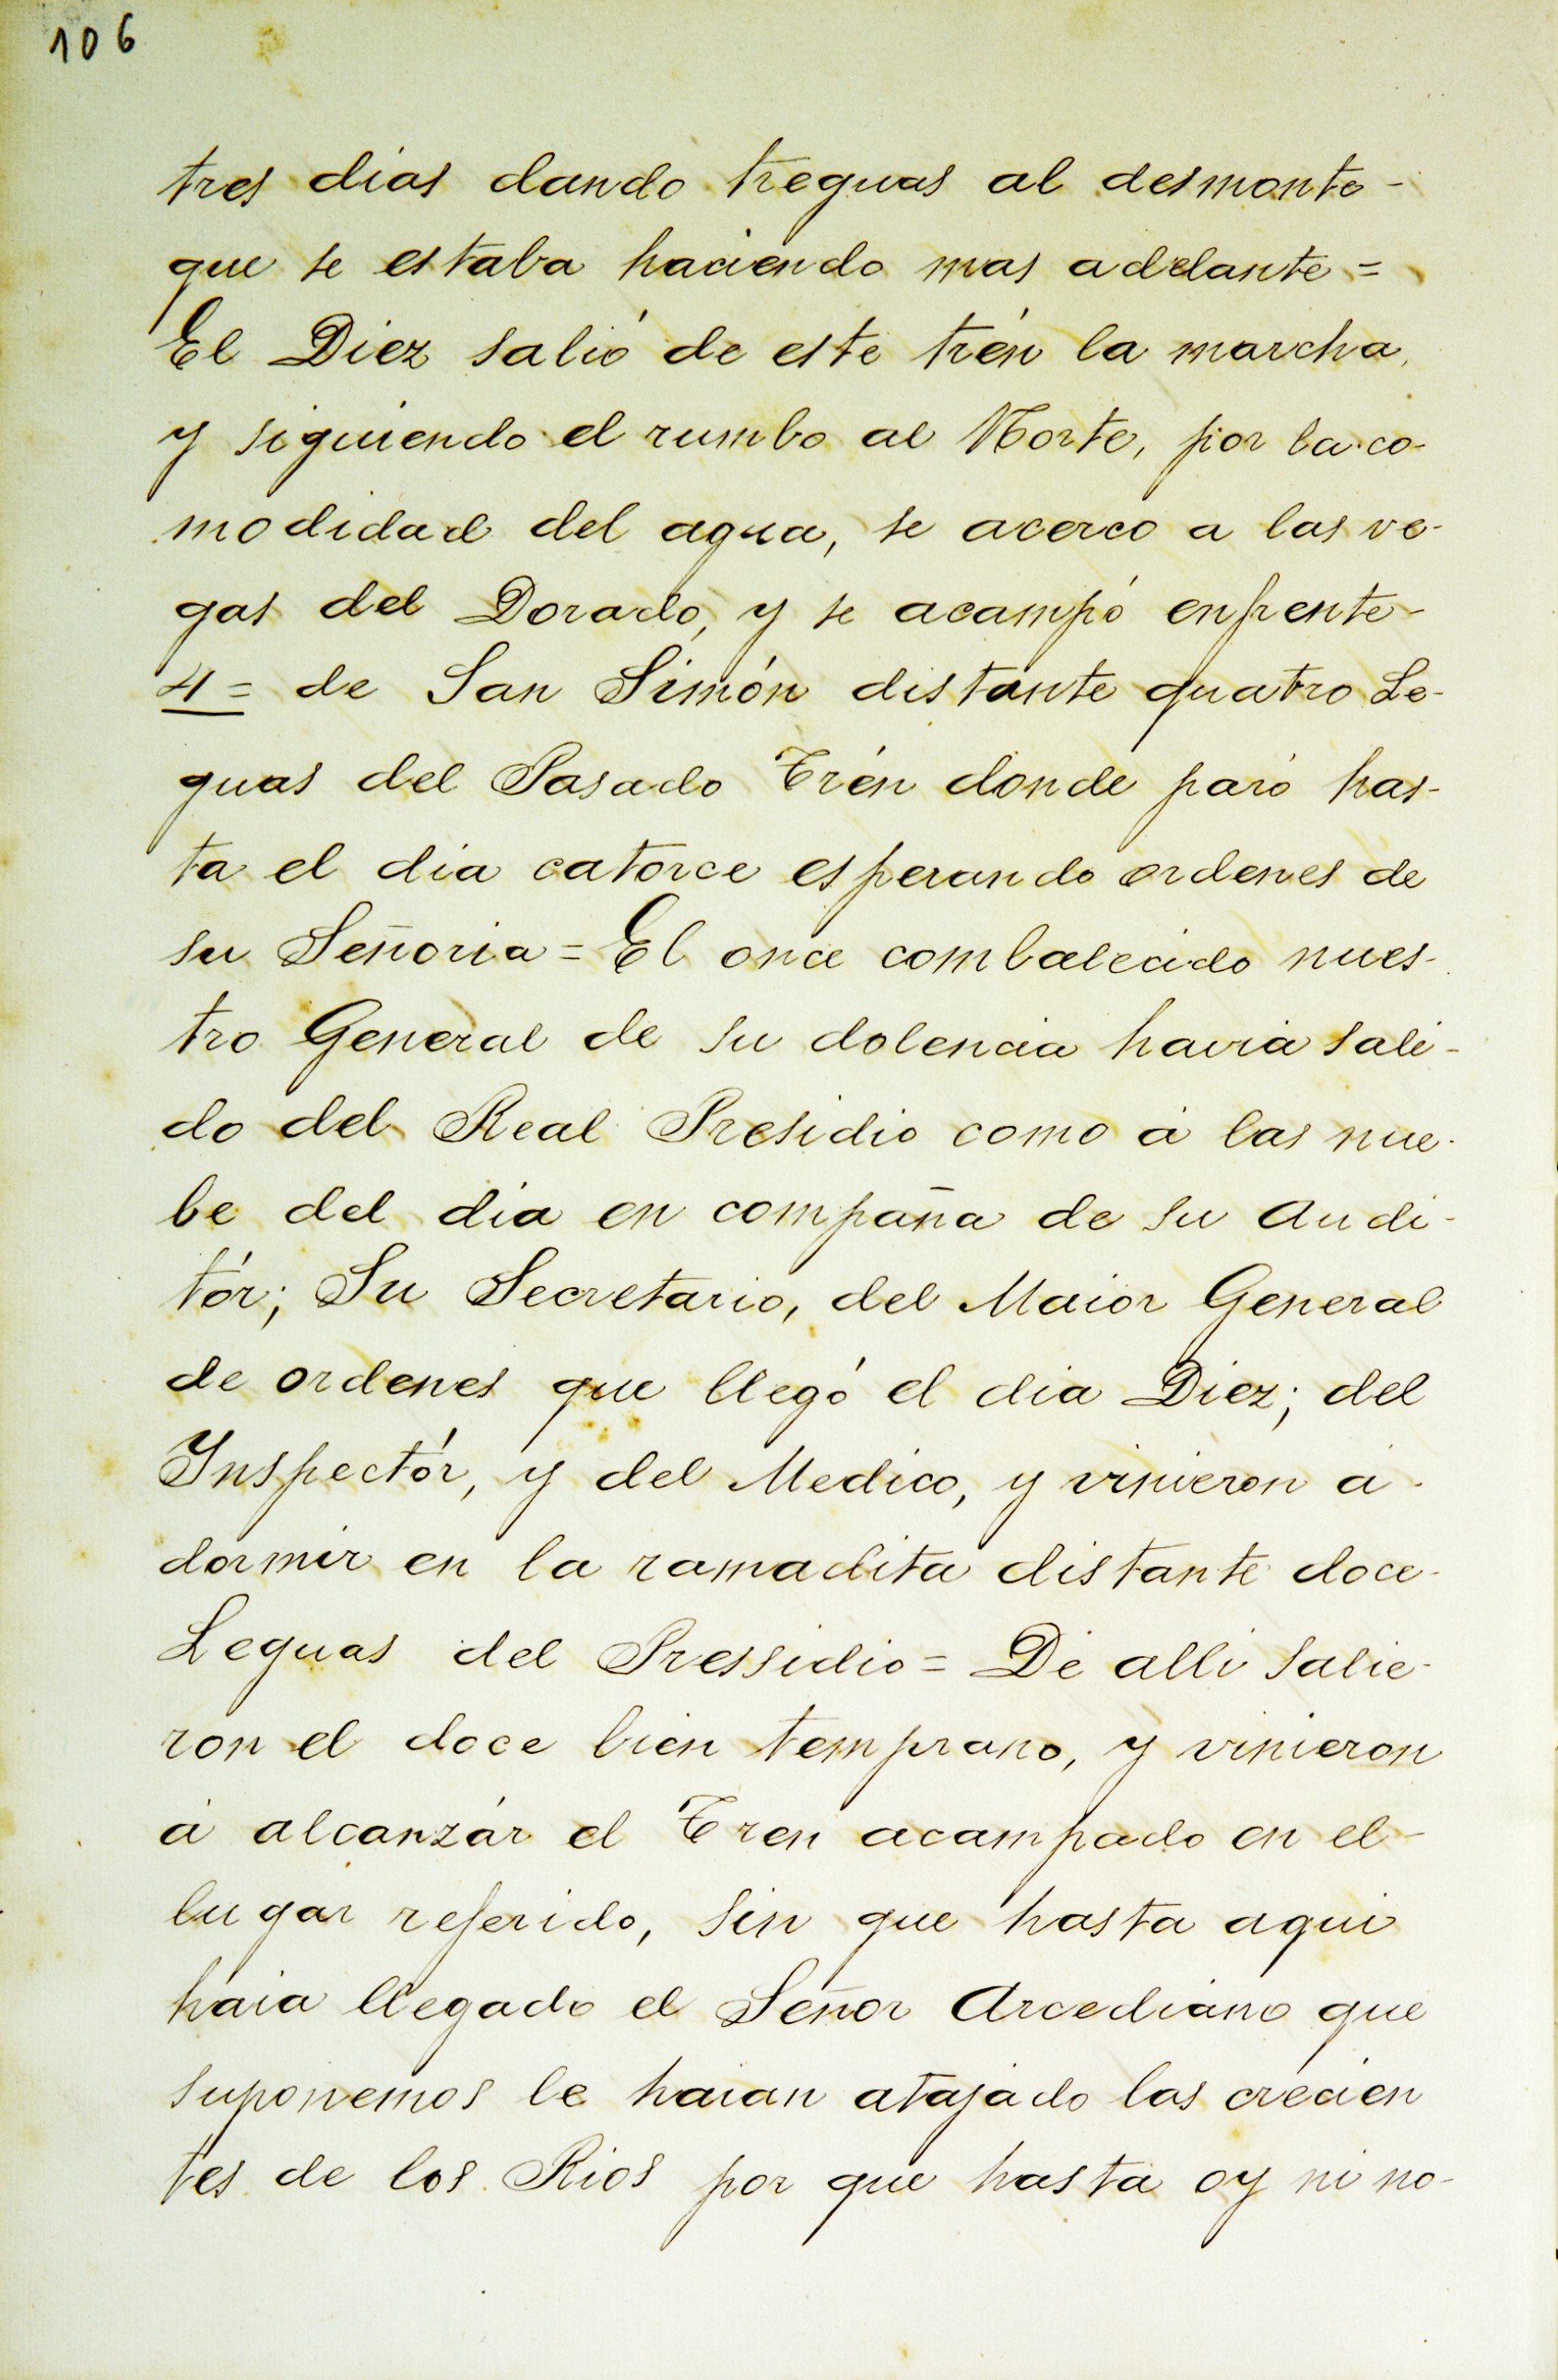 106
tres dias dando treguas al desmonte-
que se estaba haciendo mas adelante =
El Diez salió de este trén la marcha,
y siguiendo el rumbo al Norte, por la co-
modidad del agua, se acerco a las ve-
gas del Dorado, y se acampó enfrente-
4= de San Simón distante quatro Le-
guas del Pasado Trén donde paró has-
ta el dia catorce esperando ordenes de
su Señoria = El once combalecido nues-
tro General de su dolencia havia sali-
do del Real Presidio como á las nue-
be del dia en compaña de su Audi-
tór; Su Secretario, del Maior General
de ordenes que llegó el dia Diez; del
Ynspectór, y del Medico, y vinieron á
dormir en la ramadita distante doce-
Leguas del Pressidio = De alli salie-
ron el doce bien temprano, y vinieron
á alcanzár el Tren acampado en el-
lugar referido, sin que hasta aqui
haia llegado el Señor Arcediano que
suponemos le haian atajado las crecien
tes de los Rios por que hasta oy ni no-